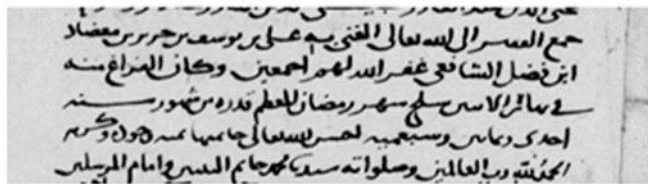 جمع الفقير الى الله تعالى الغني به على بن يوسف بن حرير بن معضاد
ابن فضل الشافعي غفر الله لهم اجمعين وكان الفراغ منه
في نهار الاثنين سلخ شهر رمضان المعظم قدره من شهور سنه
احدى وثمانين وسبعميه احسن الله تعالى خاتمتها بمنه وكرمه
الحمد لله رب العالمين وصلواته سيدنا محمد خاتم النبيين وامام المرسلين